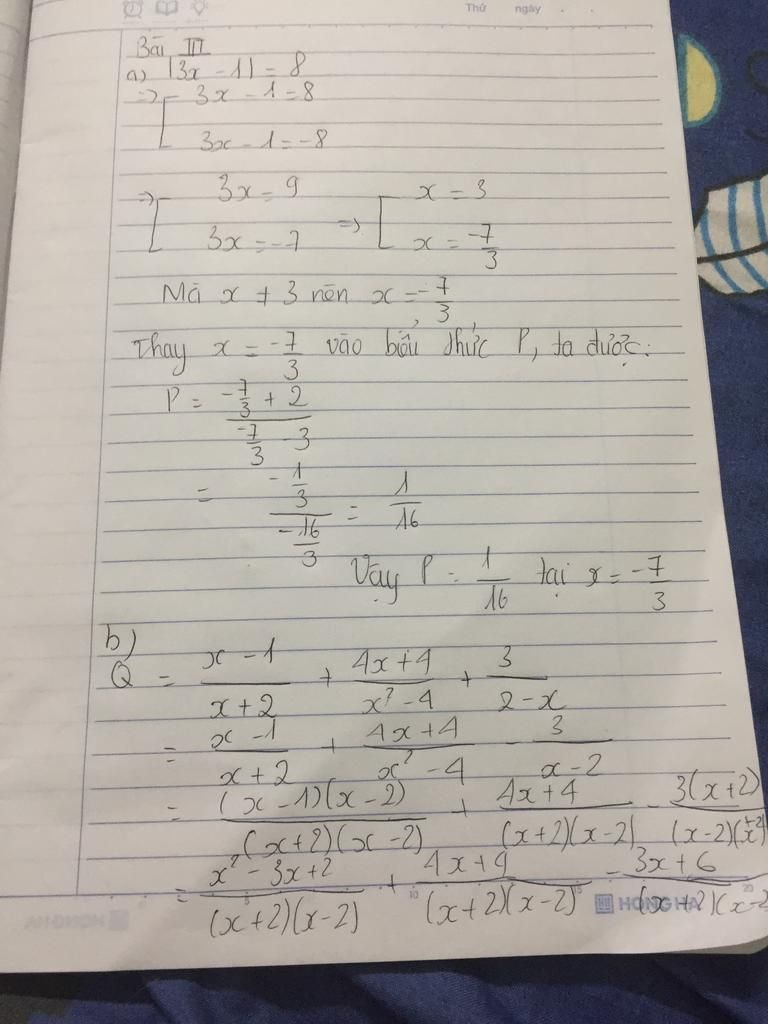 Thứ ngày . .
Bài III
a) |3x - 1| = 8
=> [ 3x - 1 = 8
3x - 1 = -8
=> [ 3x = 9 => [ x = 3
3x = -7 x = -7/3
Mà x ≠ 3 nên x = -7/3
Thay x = -7/3 vào biểu thức P, ta được:
P = (-7/3 + 2)/(-7/3 - 3)
= (-1/3)/(-16/3) = 1/16
Vậy P = 1/16 tại x = -7/3
b)
Q = (x - 1)/(x + 2) + (4x + 4)/(x² - 4) + 3/(2 - x)
= (x - 1)/(x + 2) + (4x + 4)/(x² - 4) - 3/(x - 2)
= (x - 1)(x - 2)/(x + 2)(x - 2) + (4x + 4)/(x + 2)(x - 2) - 3(x + 2)/(x - 2)(x + 2)
= (x² - 3x + 2)/(x + 2)(x - 2) + (4x + 4)/(x + 2)(x - 2) - (3x + 6)/(x + 2)(x - 2
HONG HA